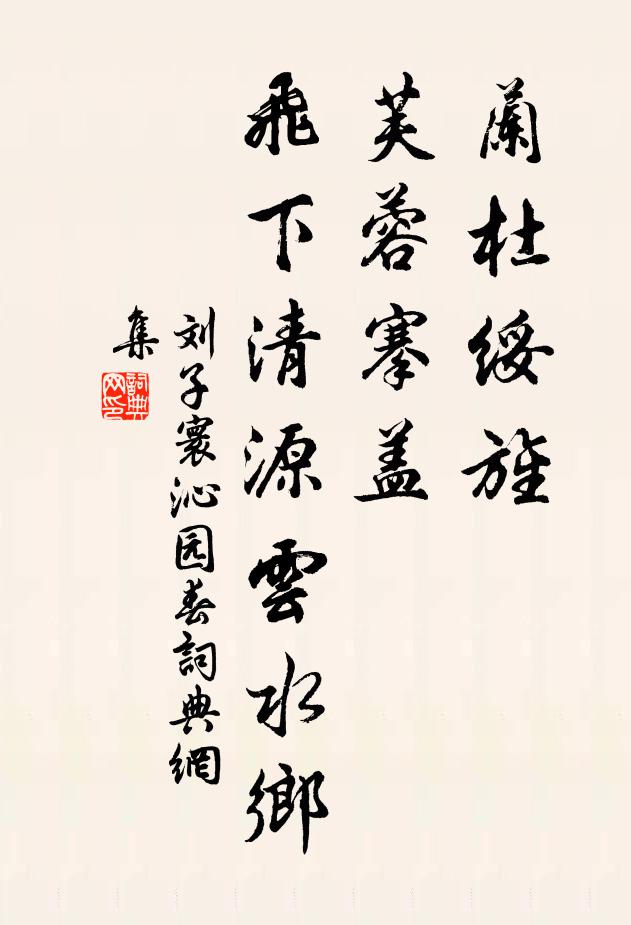 蘭杜綏旌
芙蓉搴盖
飛下清源雲水鄉
刘子寰沁园春詞典網
集
詞典网印